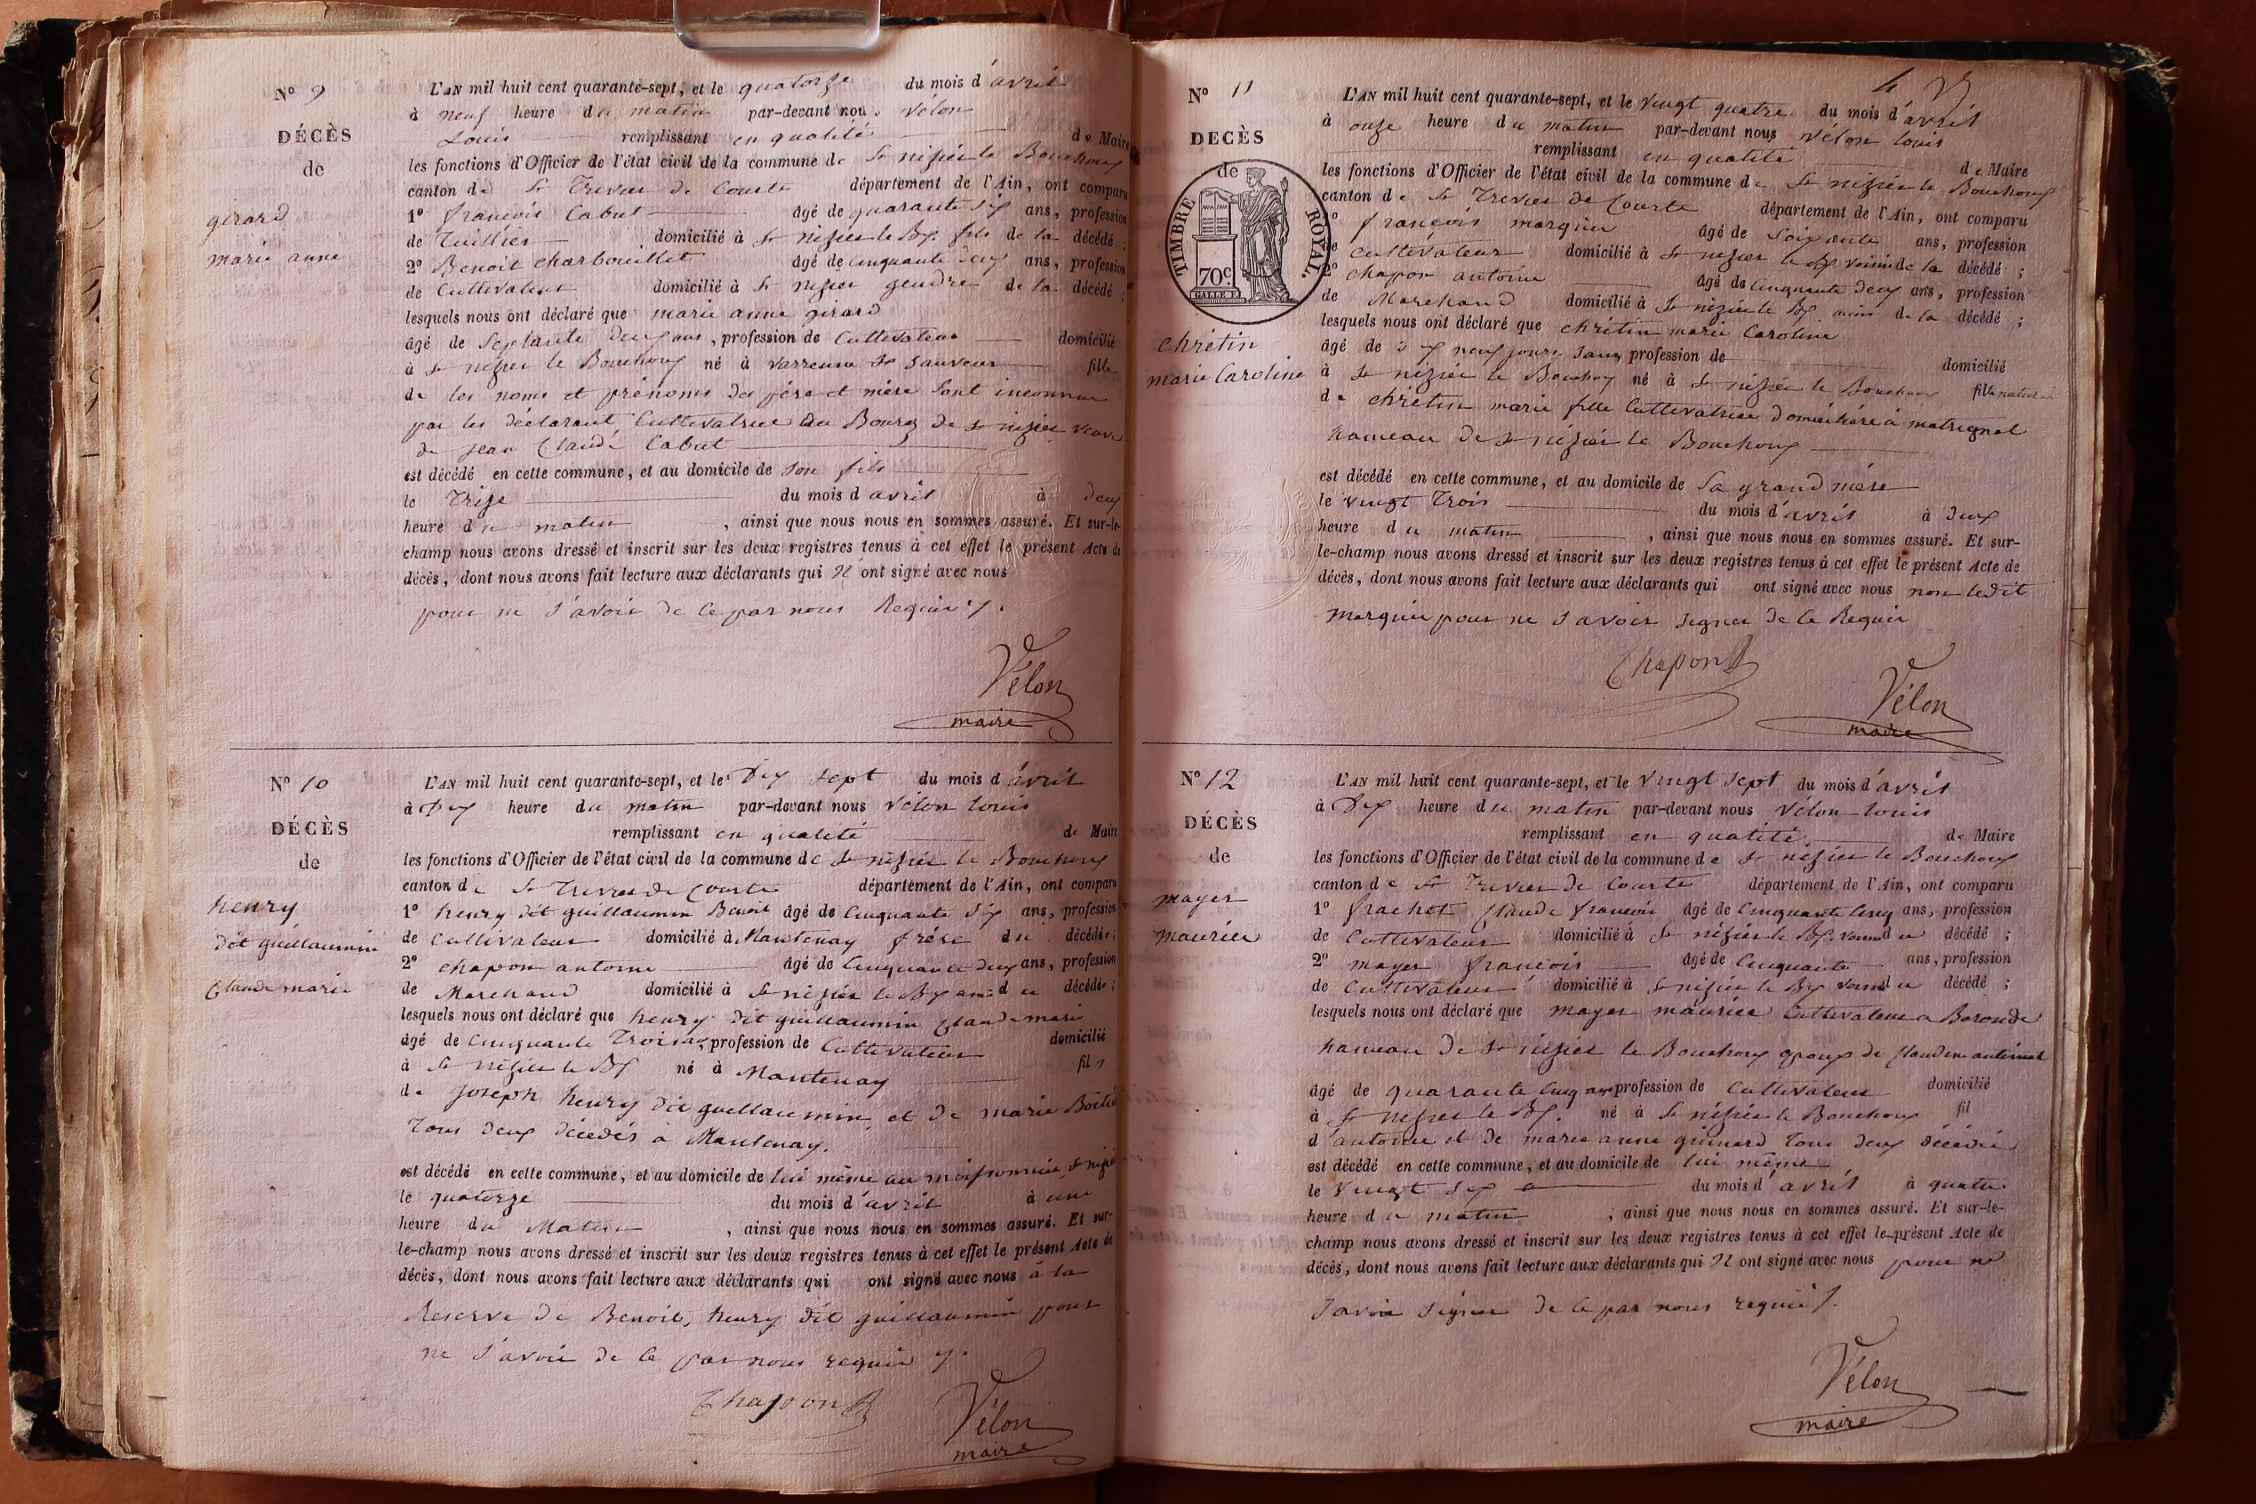 N° 9
DÉCÈS
de
girard
marie anne
L'AN mil huit cent quarante-sept, et le quatorze du mois d'avril
à neuf heure du matin par-devant nous Vélon
Louis remplissant en qualité de Maire
les fonctions d'Officier de l'état civil de la commune de St nizier le Bouchoux
canton de St Trivier de Courte département de l'Ain, ont comparu
1° françois Cabut âgé de quarante six ans, profession
de Tuillier domicilié à St nizier le Bx fils de la décédé ;
2° Benoit charbouillet âgé de cinquante deux ans, profession
de Cultivateur domicilié à St nizier gendre de la décédé ;
lesquels nous ont déclaré que marie anne girard
âgé de Septante deux ans, profession de Cultivateur domicilié
à St nizier le Bouchoux né à Varrenne St Sauveur fille
de les noms et prénoms des père et mère sont inconnus
par les déclarant, Cultivatrice au Bourg de St nizier veuve
de jean Claude Cabut
est décédé en cette commune, et au domicile de son fils
le Trize du mois d avril à deux
heure du matin , ainsi que nous nous en sommes assuré. Et sur-le-
champ nous avons dressé et inscrit sur les deux registres tenus à cet effet le présent Acte de
décès, dont nous avons fait lecture aux déclarants qui N'ont signé avec nous
pour ne Savoir de ce par nous Requis
Vélon
maire
N° 10
DÉCÈS
de
henry
dit guillaumin
Claude marie
L'AN mil huit cent quarante-sept, et le Dix sept du mois d'avril
à Dix heure du matin par-devant nous Vélon Louis
remplissant en qualité de Maire
les fonctions d'Officier de l'état civil de la commune de St nizier le Bouchoux
canton de St Trivier de Courte département de l'Ain, ont comparu
1° henry dit guillaumin Benoit âgé de Cinquante Six ans, profession
de Cultivateur domicilié à Mantenay frère du décédé ;
2° chapon antoine âgé de Cinquante deux ans, profession
de Marchand domicilié à St nizier le Bx ami du décédé ;
lesquels nous ont déclaré que henry dit guillaumin Claude marie
âgé de Cinquante Trois ans, profession de Cultivateur domicilié
à St nizier le Bx né à Mantenay fils
de Joseph henry dit guillaumin et de marie
Tous deux décédés à Mantenay.
est décédé en cette commune, et au domicile de lui même au St nizier
le quatorze du mois d'avril à une
heure du Matin , ainsi que nous nous en sommes assuré. Et sur-
le-champ nous avons dressé et inscrit sur les deux registres tenus à cet effet le présent Acte de
décès, dont nous avons fait lecture aux déclarants qui ont signé avec nous à la
Reserve de Benoit, henry dit guillaumin pour
ne Savoir de ce par nous requis
Chapon
Vélon
maire
N° 11
DECÈS
de
TIMBRE ROYAL.
70c.
chrétin
marie Caroline
L'AN mil huit cent quarante-sept, et le Vingt quatre du mois d'avril
à onze heure du matin par-devant nous Vélon Louis
remplissant en qualité de Maire
les fonctions d'Officier de l'état civil de la commune de St nizier le Bouchoux
canton de St Trivier de Courte département de l'Ain, ont comparu
1° françois marguin âgé de Soixante ans, profession
de cultivateur domicilié à St nizier le Bx Voisin de la décédé ;
2° chapon antoine âgé de Cinquante deux ans, profession
de Marchand domicilié à St nizier le Bx ami de la décédé ;
lesquels nous ont déclaré que chrétin marie Caroline
âgé de neuf jours Sans profession de domicilié
à St nizier le Bouchoux né à St nizier le Bouchoux fille naturel
de chrétin marie fille Cultivatrice à
hameau de St nizier le Bouchoux
est décédé en cette commune, et au domicile de Sa grand mère
le Vingt Trois du mois d'avril à Deux
heure du matin , ainsi que nous nous en sommes assuré. Et sur-
le-champ nous avons dressé et inscrit sur les deux registres tenus à cet effet le présent Acte de
décès, dont nous avons fait lecture aux déclarants qui ont signé avec nous non ledit
Marguin pour ne Savoir signer de ce Requis
Chapon
Vélon
maire
N° 12
DÉCÈS
de
mayer
maurice
L'AN mil huit cent quarante-sept, et le Vingt Sept du mois d'avril
à Dix heure du matin par-devant nous Vélon Louis
remplissant en qualité de Maire
les fonctions d'Officier de l'état civil de la commune de St nizier le Bouchoux
canton de St Trivier de Courte département de l'Ain, ont comparu
1° frachet Claude françois âgé de Cinquante Cinq ans, profession
de Cultivateur domicilié à St nizier le Bx Voisin du décédé ;
2° mayer françois âgé de Cinquante ans, profession
de Cultivateur domicilié à St nizier le Bx Voisin du décédé ;
lesquels nous ont déclaré que mayer maurice Cultivateur a
hameau de St nizier le Bouchoux époux de
âgé de quarante Cinq ans profession de Cultivateur domicilié
à St nizier le Bx. né à St nizier le Bouchoux fil
d'antoine et de marie anne Tous deux décédés
est décédé en cette commune, et au domicile de lui même
le Vingt Six du mois d'avril à quatre
heure du matin , ainsi que nous nous en sommes assuré. Et sur-le-
champ nous avons dressé et inscrit sur les deux registres tenus à cet effet le présent Acte de
décès, dont nous avons fait lecture aux déclarants qui N'ont signé avec nous pour ne
Savoir Signer de ce par nous requis
Vélon
maire